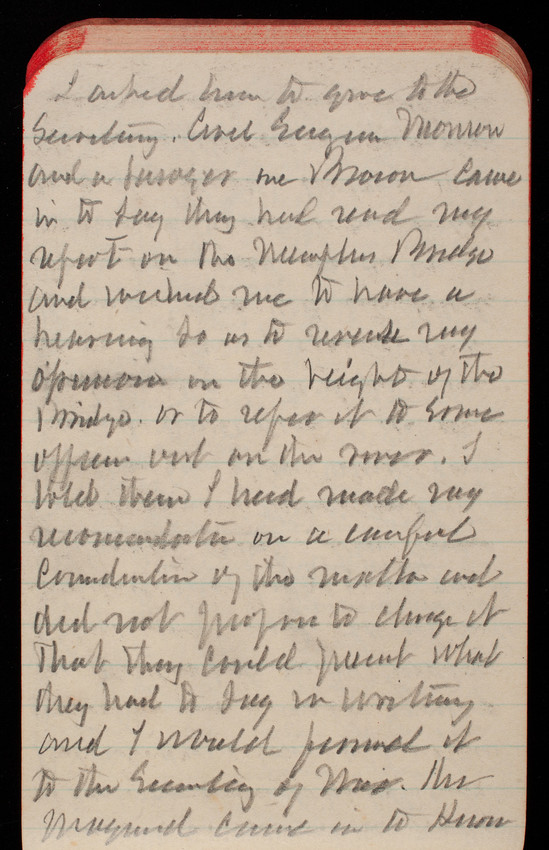 I asked him to give to the
Secretary. Civil Engineer Monson
and a lawyer one Brown came
in to say they had read my
report on the Memphis Bridge
and wished me to have a
hearing so as to revise my
opinion on the height of the
Bridge. or to refer it to some
officer out on the river. I
told them I had made my
recommendation on a careful
Consideration of the matter and
did not propose to change it
That they could present what
they had to say in writing
and I would forward it
to the Secretary of War. Mr
Maynard came in to know